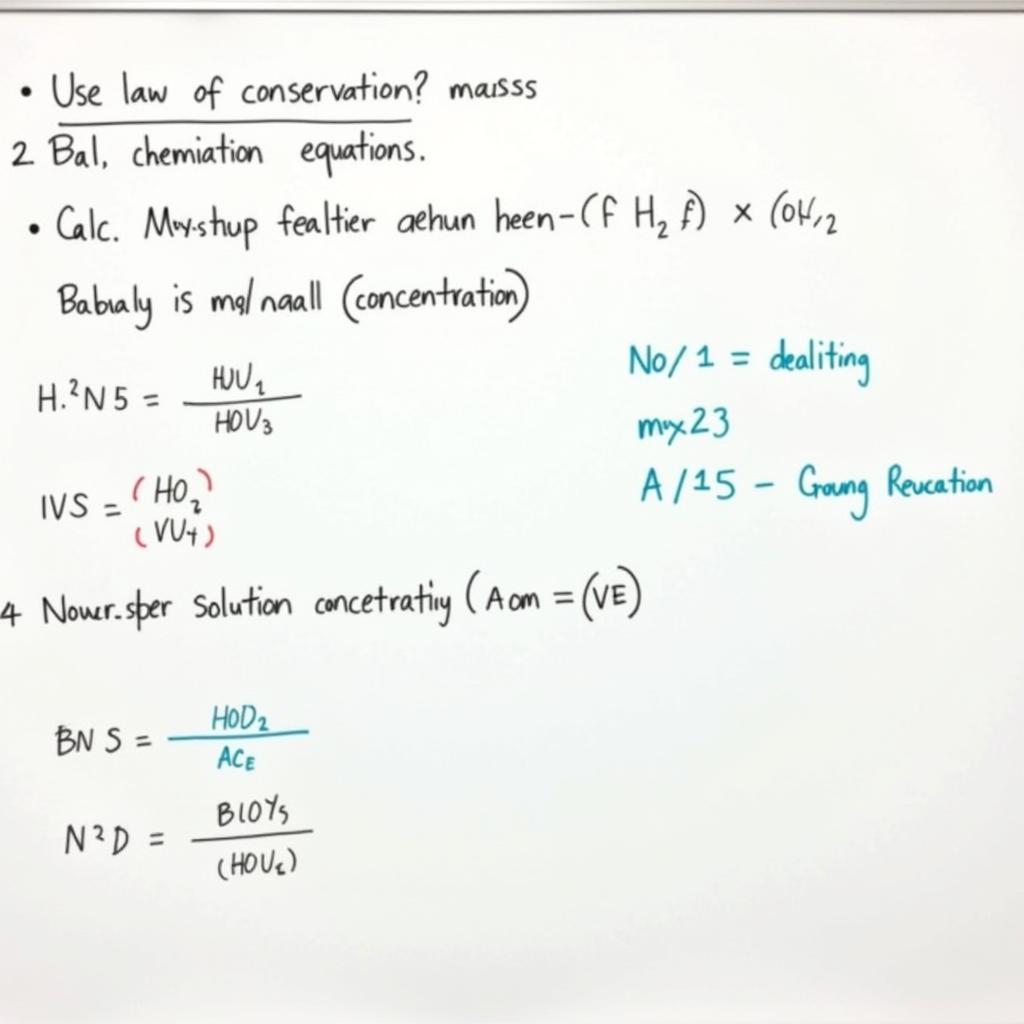 • Use law of conservation? mausss
2 Bal, chemiation equations.
• Calc. Mwy-shup fealtier aehun heen-(f H₂ f) × (OH,₂
Babualy is mg/naall (concentration)
H.²N5 = HUU₁ / HOU₃
No/1 = dealiting
mx23
A/15 - Groung Reucation
IVS = (HO₂) (VU₄)
4 Nowr.sper Solution concetratiy (Aom = (VE)
BN S = HOD₂ / ACE
N²D = BLOYs / (HOU₂)